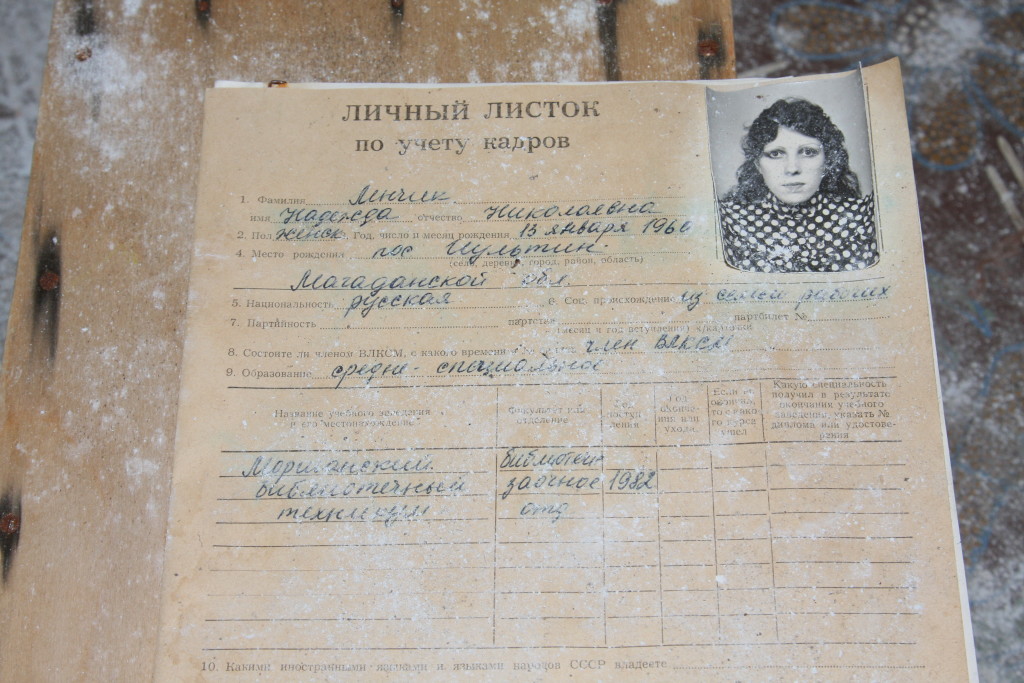 ЛИЧНЫЙ ЛИСТОК
по учету кадров
1. Фамилия Ленчик
имя Надежда отчество Николаевна
2. Пол женск. Год, число и месяц рождения 13 января 196
4. Место рождения пос Иультин.
(село, деревня, город, район, область)
Магаданской обл.
5. Национальность русская 6. Соц. происхождение из семьи рабочих
7. Партийность партстаж партбилет №
(месяц и год вступления)
8. Состоите ли членом ВЛКСМ, с какого времени и № член ВЛКСМ
9. Образование средне-специальное
Название учебного заведения
и его местонахождение
Факультет или
отделение
Год
поступ-
ления
Год
оконча-
ния или
ухода
Если не
окончил,
то с како-
го курса
ушел
Какую специальность
получил в результате
окончания учебного
заведения, указать №
диплома или удостове-
рения
библиотеч-
библиотечный заочное 1982
техникум отд
10. Какими иностранными языками и языками народов СССР владеете